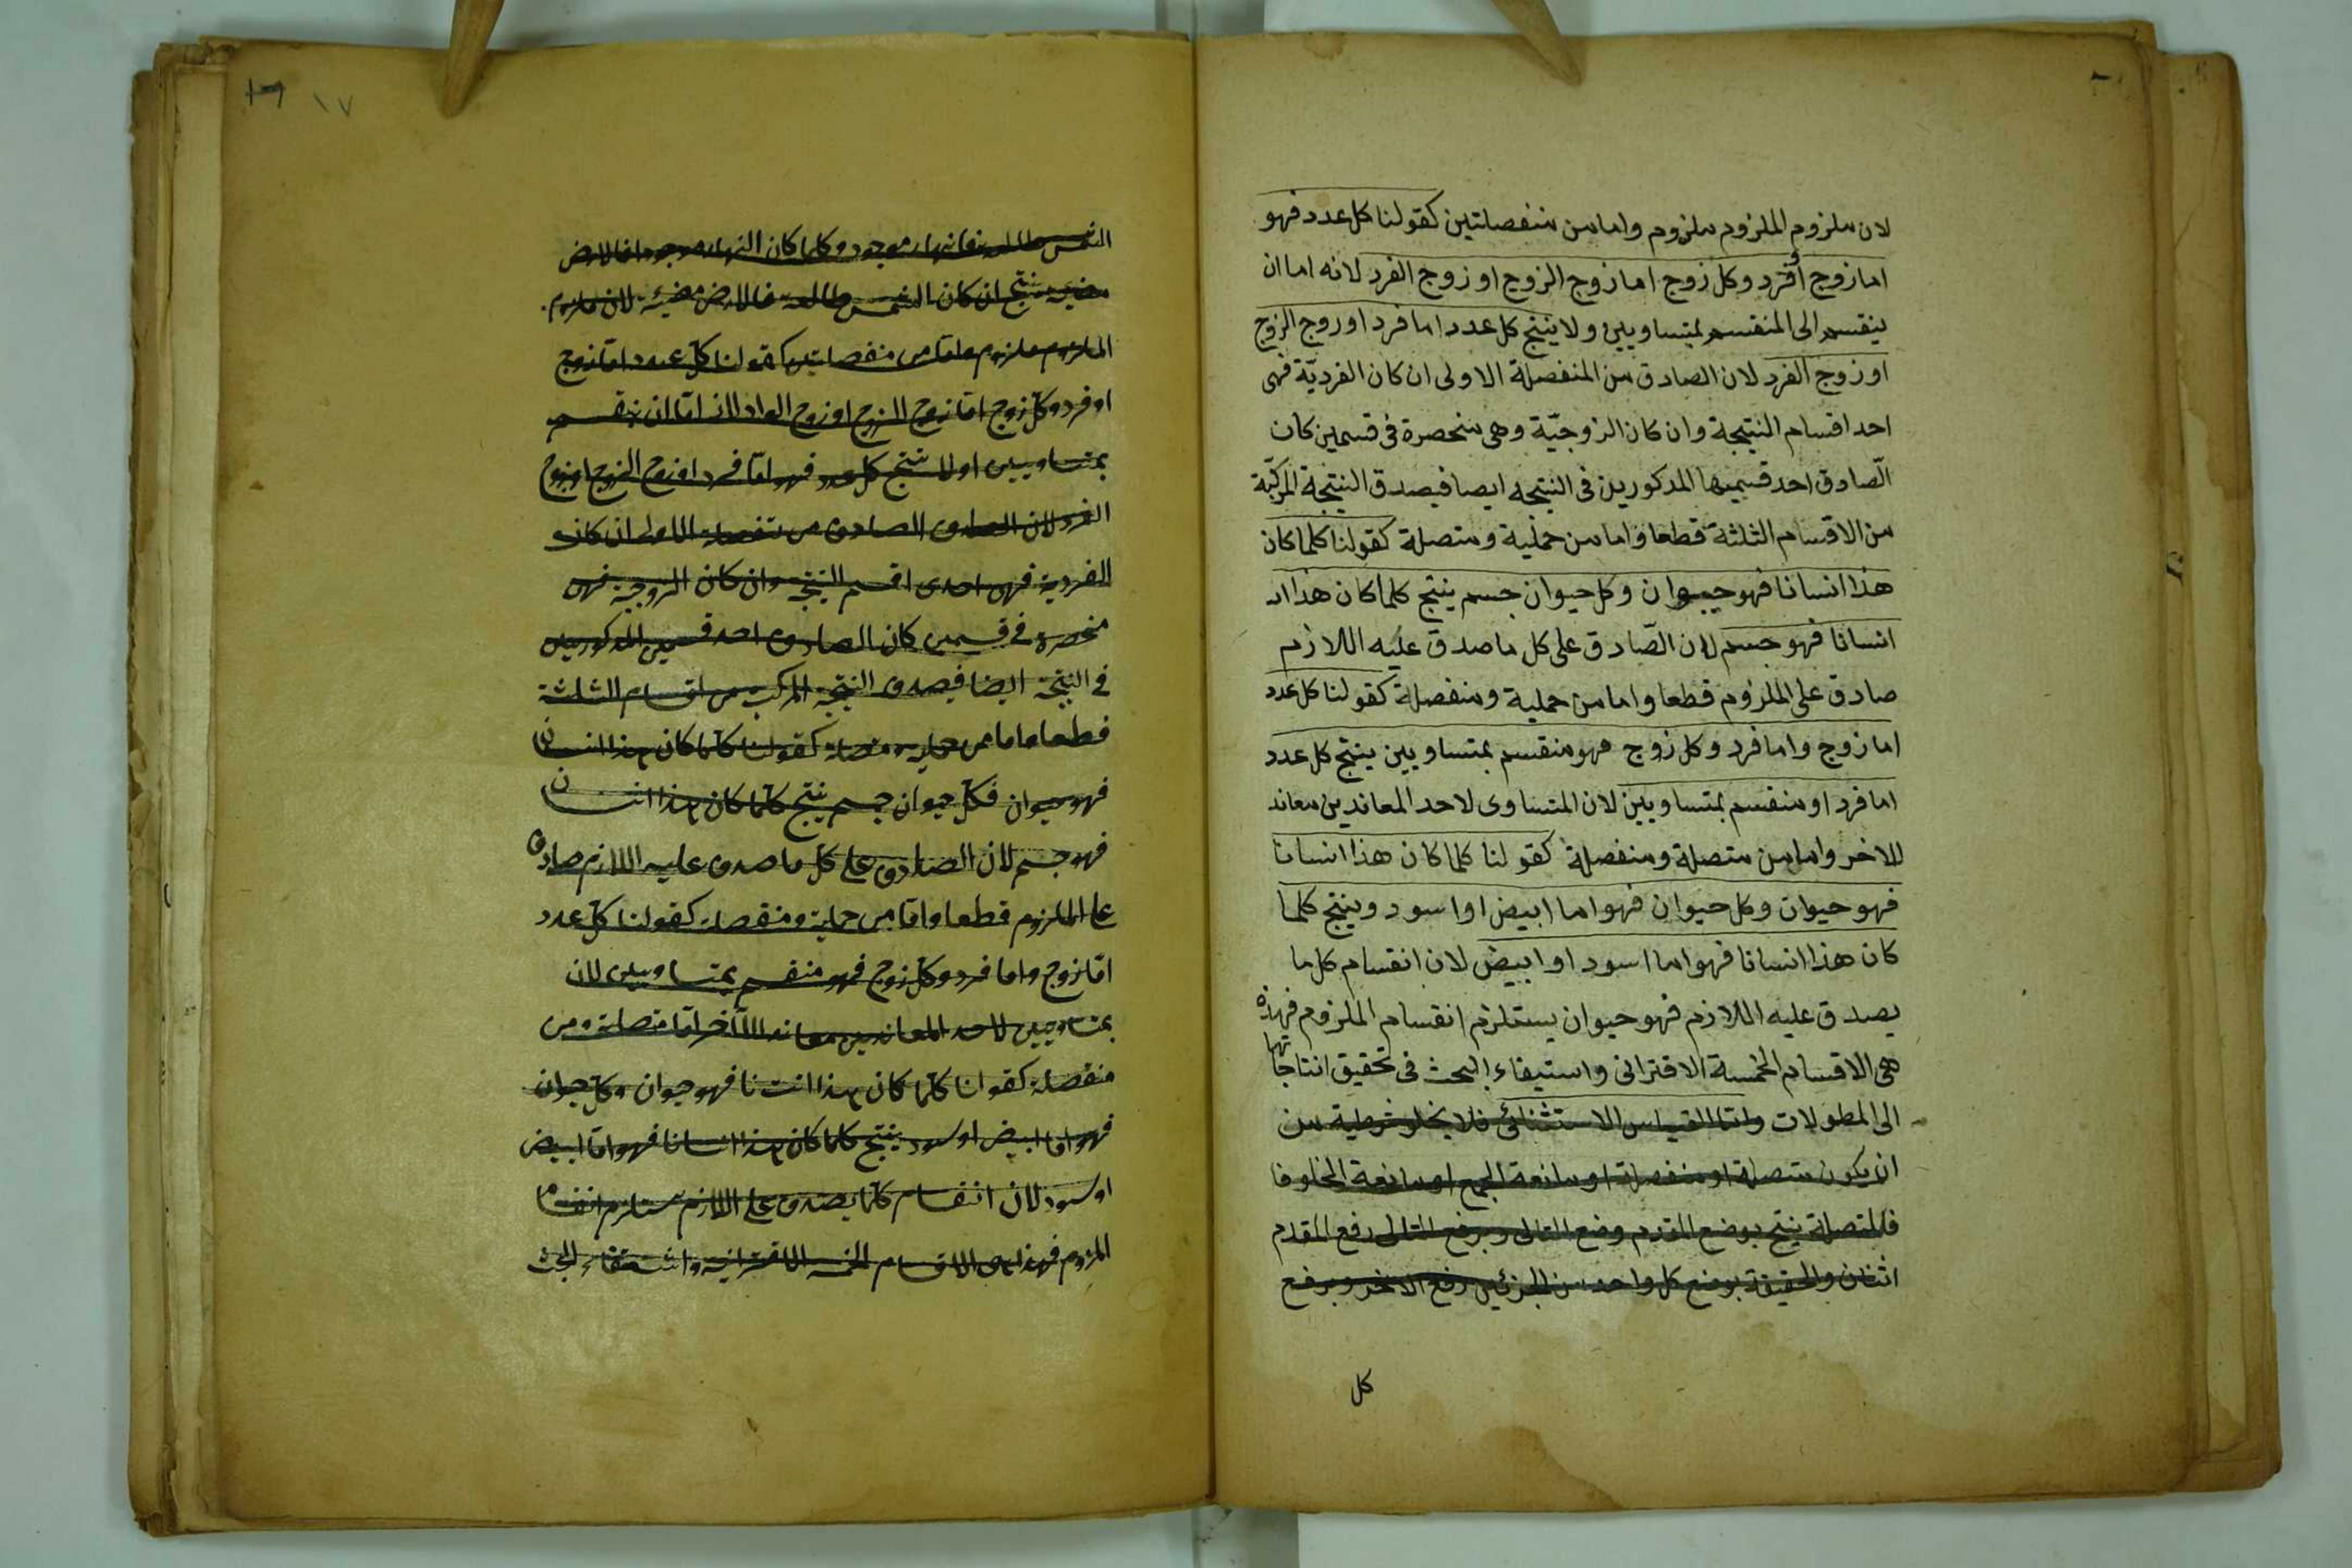 لان ملزوم الملزوم ملزوم واما من منفصلتين كقولنا كل عدد فهو
اما زوج أو فرد وكل زوج اما زوج الزوج او زوج الفرد لانه اما ان
ينقسم الى المنقسم بمتساويين ولا ينتج كل عدد اما فرد او زوج الزوج
او زوج الفرد لان الصادق من المنفصلة الاولى ان كان الفرديّة فهى
احد اقسام النتيجة وان كان الزوجيّة وهى منحصرة فى قسمين كان
الصّادق احد قسميها المذكورين فى النتيجه ايضا فيصدق النتيجة المركّبة
من الاقسام الثلثة قطعا واما من حملية ومتصلة كقولنا كلما كان
هذا انسانا فهو حيوان وكل حيوان جسم ينتج كلما كان هذا
انسانا فهو جسم لان الصّادق على كل ما صدق عليه اللازم
صادق على الملزوم قطعا واما من حملية ومنفصلة كقولنا كل عدد
اما زوج واما فرد وكل زوج فهو منقسم بمتساويين ينتج كل عدد
اما فرد او منقسم بمتساويين لان المتساوى لاحد المعاندين معاند
للاخر واما من متصلة ومنفصلة كقولنا كلما كان هذا انسانا
فهو حيوان وكل حيوان فهو اما ابيض او اسود وينتج كلما
كان هذا انسانا فهو اما اسود او ابيض لان انقسام كل ما
يصدق عليه اللازم فهو حيوان يستلزم انقسام الملزوم فهذه
هى الاقسام الخمسة الاقترانى واستيفاء البحث فى تحقيق انتاجاتها
الى المطولات واما القياس الاستثنائى فلا يخلو شرطية من
ان يكون متصلة او منفصلة او مانعة الجمع او مانعة الخلو فا
فالمتصلة ينتج بوضع المقدم وضع التالى وبرفع التالى رفع المقدم
اثنان والحقيقة بوضع كل واحد من الجزئين رفع الاخر وبرفع
كل
١٦ ١٧
الشمس طالعة فالنهار موجود وكلما كان النهار موجودا فالارض
مضيئة ينتج ان كان الشمس طالعة فالارض مضيئة لان ملزوم
الملزوم ملزوم واما من منفصلتين كقولنا كل عدد اما زوج
او فرد وكل زوج اما زوج الزوج او زوج لانه اما ان ينقسم
بمتساويين اولا ينتج كل عدد فهو اما فرد او زوج الزوج او زوج
الفرد لان الصادق الصادق من منفصلة الاولى ان كان
الفردية فهى احدى اقسم النتيجة وان كان الزوجية فهى
منحصرة فى قسمين كان الصادق احد قسمين المذكورين
فى النتيجة ايضا فيصدق النتيجة المركبة من اقسام الثلثة
قطعا واما من حملية ومتصلة كقولنا كلما كان هذا انسان
فهو حيوان فكل حيوان جسم ينتج كلما كان هذا انسان
فهو جسم لان الصادق على كل ما صدق عليه اللازم صادق
على الملزوم قطعا واما من حملية ومنفصلة كقولنا كل عدد
اما زوج واما فرد وكل زوج فهو منقسم بمتساويين لان
بمتساويين لاحد المعاندين معاند للآخر اما متصلة ومن
منفصلة كقولنا كلما كان هذا انسانا فهو حيوان وكل حيوان
فهو اما ابيض او اسود ينتج كلما كان هذا انسانا فهو اما ابيض
او اسود لان انقسام كلما يصدق على اللازم يستلزم انقسام
الملزوم فهذا هى الاقسام الخمسة الاقترانية واستيفاء البحث